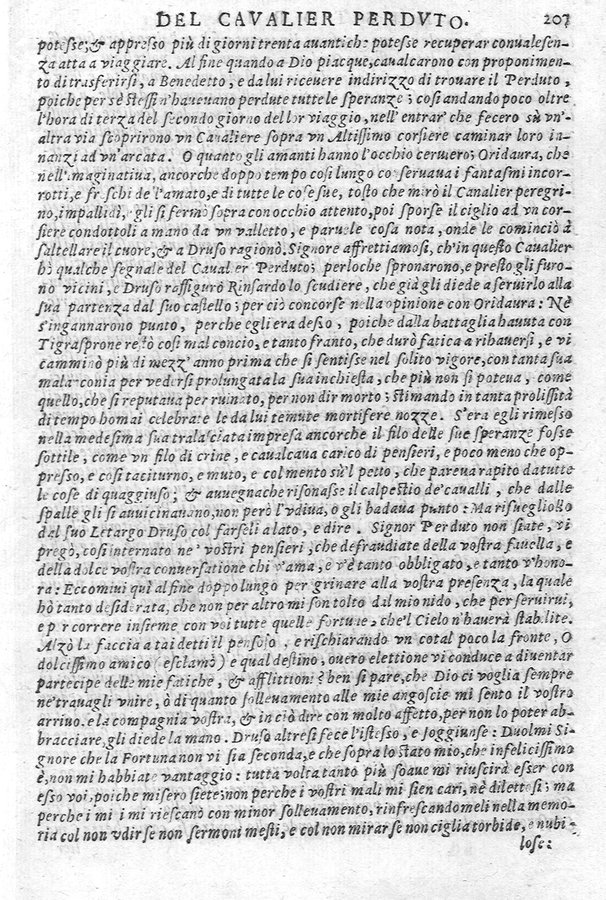 DEL CAVALIER PERDVTO. 207
potesse; & appresso più di giorni trenta auantiche potesse recuperar conualesen-
za atta a viaggiare. Al fine quando a Dio piacque, caualcarono con proponimen-
to di trasferirsi, a Benedetto, e da lui riceuere indirizzo di trouare il Perduto,
poiche per sè stessi n'haueuano perdute tutte le speranze; cosi andando poco oltre
l'hora di terza del secondo giorno del lor viaggio, nell'entrar' che fecero sù vn'
altra via scoprirono vn Caualiere sopra vn Altissimo corsiere caminar loro in-
nanzi ad vn'arcata. O quanto gli amanti hanno l'occhio ceruiero; Oridaura, che
nell'imaginatiua, ancorche doppo tempo cosi lungo conseruaua i fantasmi incor-
rotti, e freschi de l'amato, e di tutte le cose sue, tosto che mirò il Caualier peregri-
no, impallidì, egli si fermò sopra con occhio attento, poi sporse il ciglio ad vn cor-
siere condottoli a mano da vn valletto, e paruele cosa nota, onde le cominciò a
saltellare il cuore, & a Druso ragionò. Signore affrettiamosi, ch'in questo Caualier
hò qualche segnale del Caualier Perduto; perloche spronarono, e presto gli furo-
no vicini, e Druso raffigurò Rinsardo lo scudiere, che già gli diede a seruirlo alla
sua partenza dal suo castello; per ciò concorse nella opinione con Oridaura: Nè
s'ingannarono punto, perche egli era desso, poiche dalla battaglia hauuta con
Tigrasprone restò cosi mal concio, e tanto franto, che durò fatica a ribauersi, e vi
camminò più di mezz'anno prima che si sentisse nel solito vigore, con tanta sua
malanconia per vedersi prolungata la sua inchiesta, che più non si poteua, come
quello, che si reputaua per ruinato, per non dir morto; stimando in tanta prolissità
di tempo homai celebrate le da lui temute mortifere nozze. S'era egli rimesso
nella medesima sua tralasciata impresa ancorche il filo delle sue speranze fosse
sottile, come vn filo di crine, e caualcaua carico di pensieri, e poco meno che op-
presso, e cosi taciturno, e muto, e col mento sù'l petto, che pareua rapito da tutte
le cose di quaggiuso; & auuegnache risonasse il calpestio de' caualli, che dalle
spalle gli si auuicinauano, non però l'vdiua, o gli badaua punto: Ma risuegliollo
dal suo Letargo Druso col farseli a lato, e dire. Signor Perduto non siate, vi
pregò, cosi internato ne' vostri pensieri, che defraudiate della vostra fauella, e
della dolce vostra conuersatione chi v'ama, e v'è tanto obbligato, e tanto v'hono-
ra: Eccomi quì al fine doppo lungo peregrinare alla vostra presenza, la quale
hò tanto desiderata, che non per altro mi son tolto dal mio nido, che per seruirui,
e per correre insieme con voi tutte quelle fortune, che'l Cielo n'hauerà stabilite.
Alzò la faccia a tai detti il pensoso, e rischiarando vn cotal poco la fronte, O
dolcissimo amico (esclamò) e qual destino, ouero elettione vi conduce a diuentar
partecipe delle mie fatiche, & afflittioni? ben si pare, che Dio ci voglia sempre
ne' trauagli vnire, ò di quanto solleuamento alle mie angoscie mi sento il vostro
arriuo. e la compagnia vostra, & in ciò dire con molto affetto, per non lo poter ab-
bracciare, gli diede la mano. Druso altresi fece l'istesso, e soggiunse: Duolmi Si-
gnore che la Fortuna non vi sia seconda, e che sopra lo stato mio, che infelicissimo
è, non mi habbiate vantaggio: tutta volta tanto più soaue mi riuscirà esser con
esso voi, poiche misero siete; non perche i vostri mali mi sien cari, nè dilettosi; ma
perche i mi i mi riescano con minor solleuamento, rinfrescandomeli nella memo-
ria col non vdirse non sermoni mesti, e col non mirarse non ciglia torbide, e nubi-
lose: